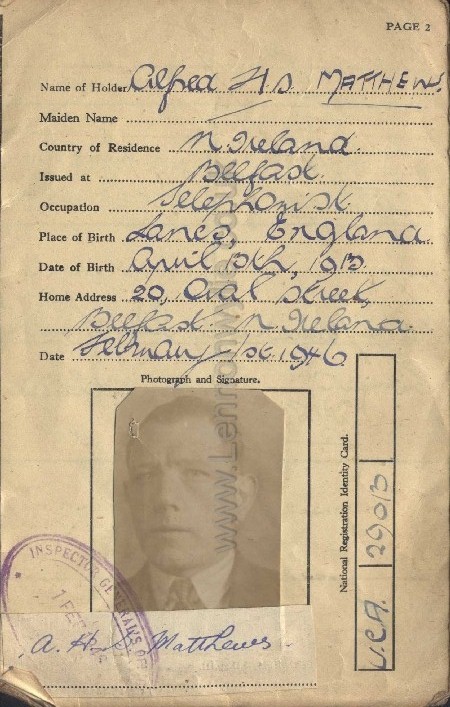 PAGE 2
Name of Holder Alfred H S MATTHEWS.
Maiden Name
Country of Residence N Ireland.
Issued at Belfast.
Occupation Telephonist.
Place of Birth Lancs, England.
Date of Birth April 5th, 1913
Home Address 20, Oval Street,
Belfast. N Ireland.
Date February 1st. 1946.
Photograph and Signature.
National Registration Identity Card.
U.C.A. 290/3
INSPECTOR GENERAL'S OF
1 FEB
A. H. S. Matthews.